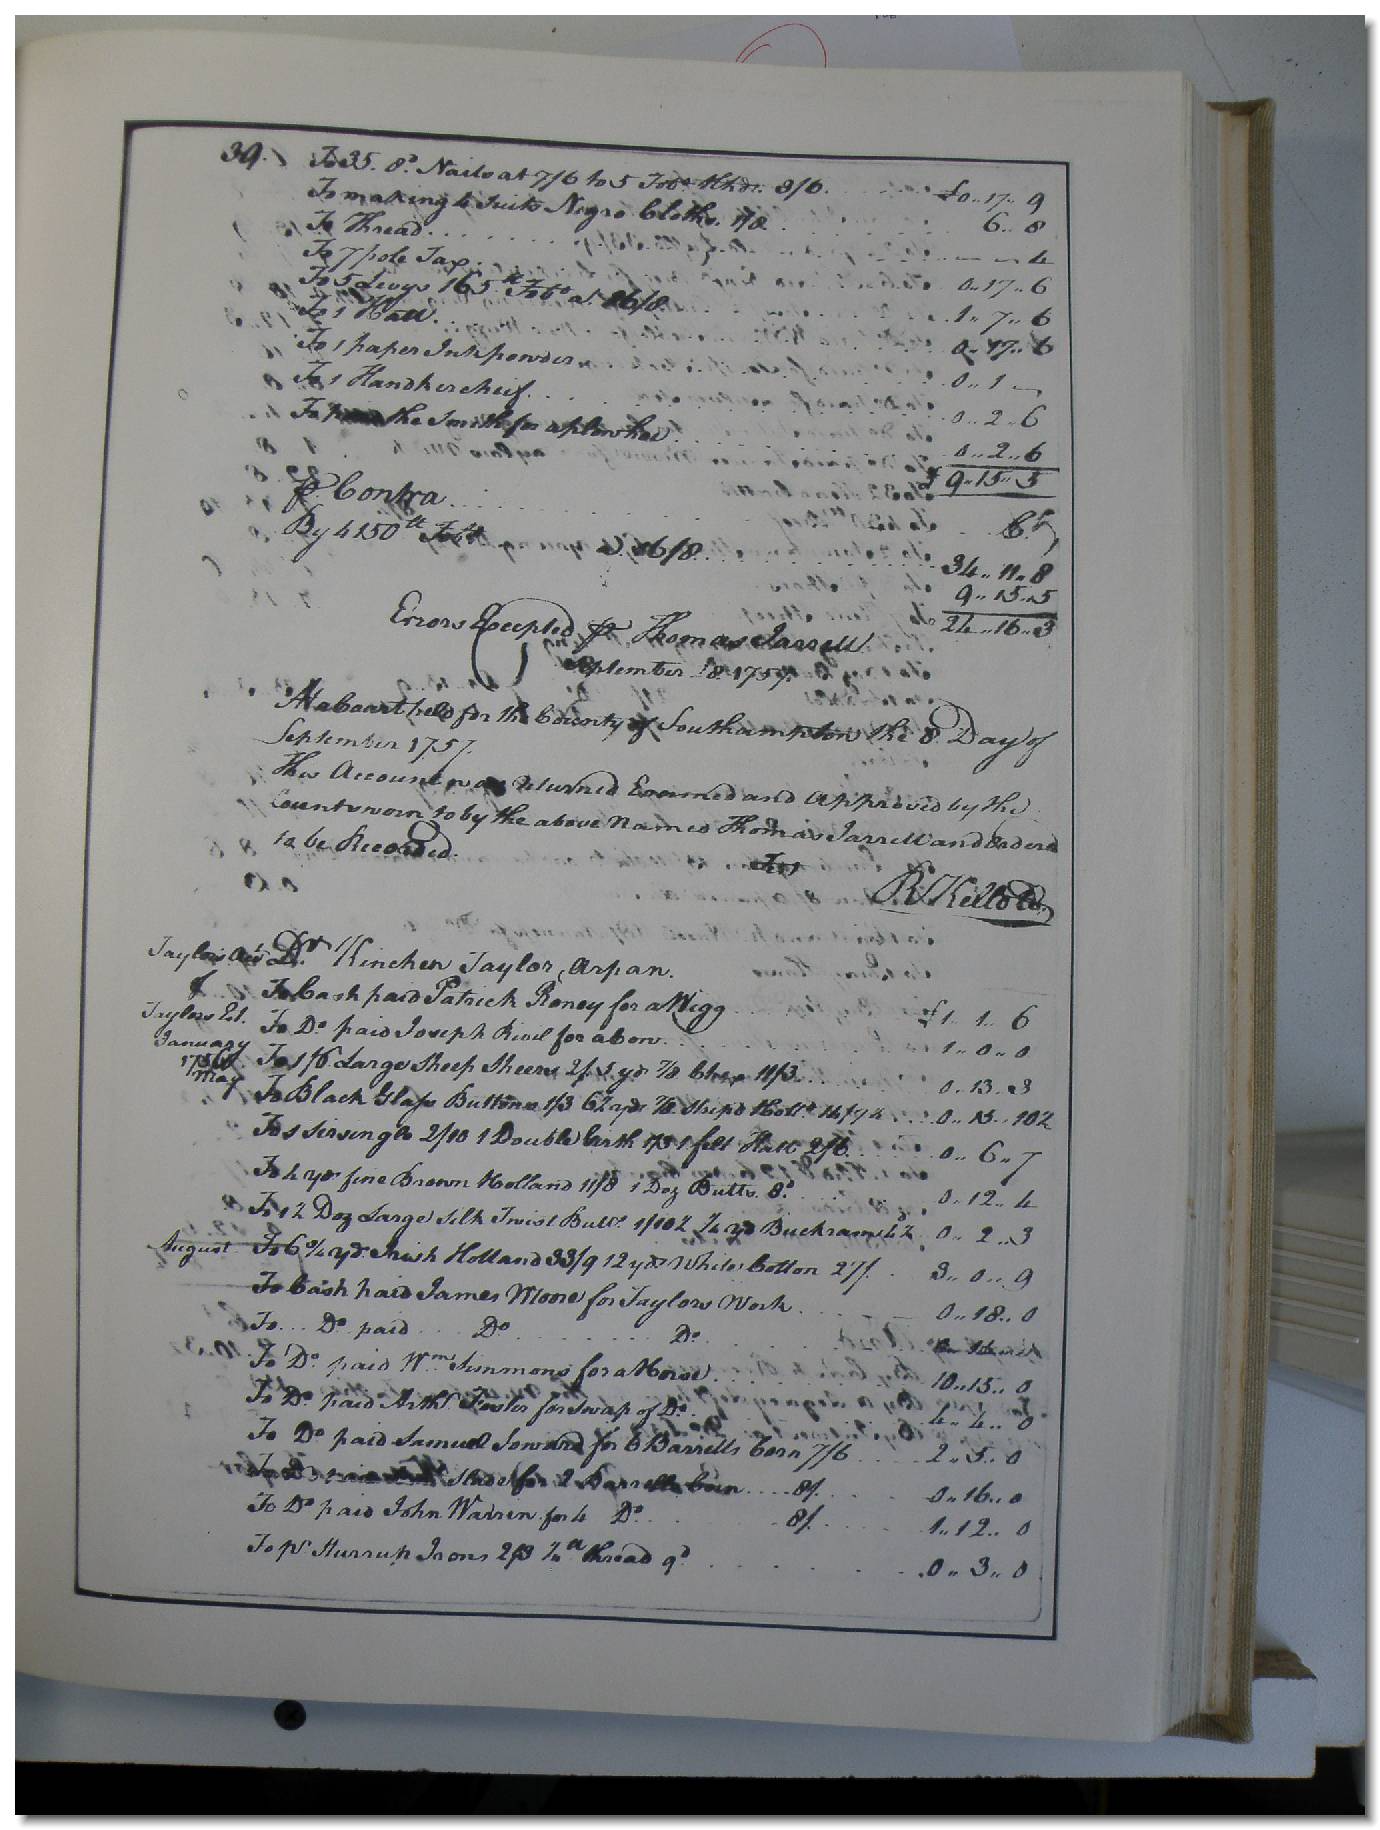 39.
To 35. 8d. Nails at 7/6 to 5 Tobo. Hhds. 8/6 £0..17..9
To making 4 Suits Negro Cloths. 1/8 6..8
To Thread 4
To 7 pole Tax 0..17..6
To 5 Levys 165 lt Tobo. at 16/8 1..7..6
To 1 Hatt 0..17..6
To 1 paper Inkpowder 0..1
To 1 Handkercheif 0..2..6
To the Smith for a plowhoe 0..2..6
£ 9..15..5
Pr. Contra Cr.
By 4150 lt Tobo. a 16/8 34..11..8
9..15..5
24..16..3
Errors Excepted Pr Thomas Jarrell
September 8. 1757.
At a Court held for the County of Southampton the 8 Day of
September 1757.
This Account was returned Examined and Approved by the
Court sworn to by the above Named Thomas Jarrell and Ordered
to be Recorded.
Test
R. Kello
Taylors Acct Dr. Kinchen Taylor, Orpan.
of To Cash paid Patrick Roney for a Wigg £1..1..6
Taylors Est. To Do paid Joseph for 1..0..0
January 1756 To 1 Large Sheep Sheers 2/. 5 yds 7/8 Chex 11/3 0..13..3
May To Black Glass Buttons 1/3 6½ yds 7/8 Stripd Holld 14/7½ 0..15..10½
To 1 Sirsingle 2/10 1 Double Girth 1/3 1 felt Hatt 2/6 0..6..7
To 4 yds fine Brown Holland 11/8 1 Doz Butts. 8d 0..12..4
To 1½ Doz Large Silk Twist Butts. 1/10½ ¼ yd Buckram 4½ 0..2..3
August To 6¾ yds Irish Holland 33/9 12 yds White Cotton 27/. 3..0..9
To Cash paid James Moore for Taylors Work 0..18..0
To Do paid Do Do
To Do paid Wm Simmons for a Horse 10..15..0
To Do paid Arthr. Foster for Swap of Do 4..4..0
To Do paid Samuel Soward for 6 Barrells Corn 7/6 2..5..0
To Do for 2 Barrells Corn 8/. 0..16..0
To Do paid John Warren for 4 Do 8/. 1..12..0
To pr Sturrup Irons 2/3 ¼ lt thread 9d 0..3..0